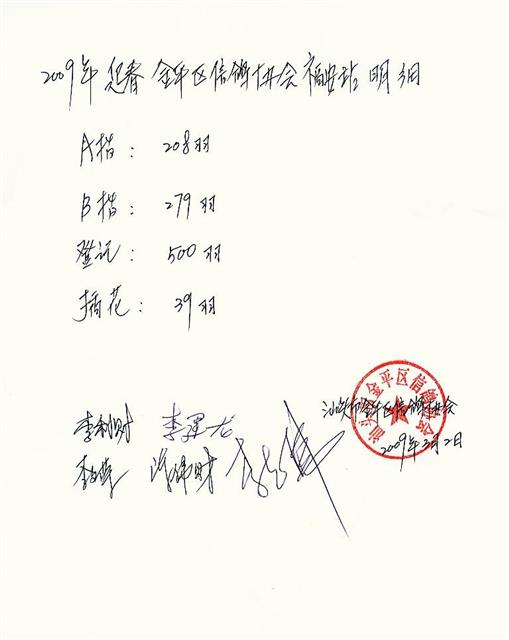 2009年迎春金平区信鸽协会福安站明细
A指: 208羽
B指: 279羽
登记: 500羽
插花: 39羽
汕头市金平区信鸽协会
李利财 李
2009年3月2日
李 财
汕头市金平区信鸽协会